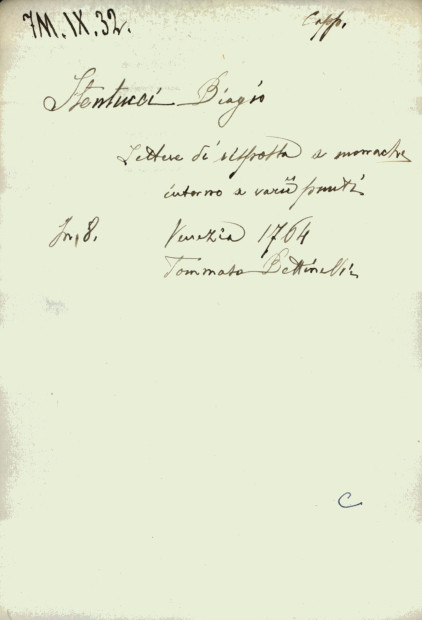 7M.IX.32.
Capp.
Stentucci Biagio
Lettere di risposta a monache
intorno a varii punti
In, 8. Venezia 1764
Tommaso Bettinelli
C